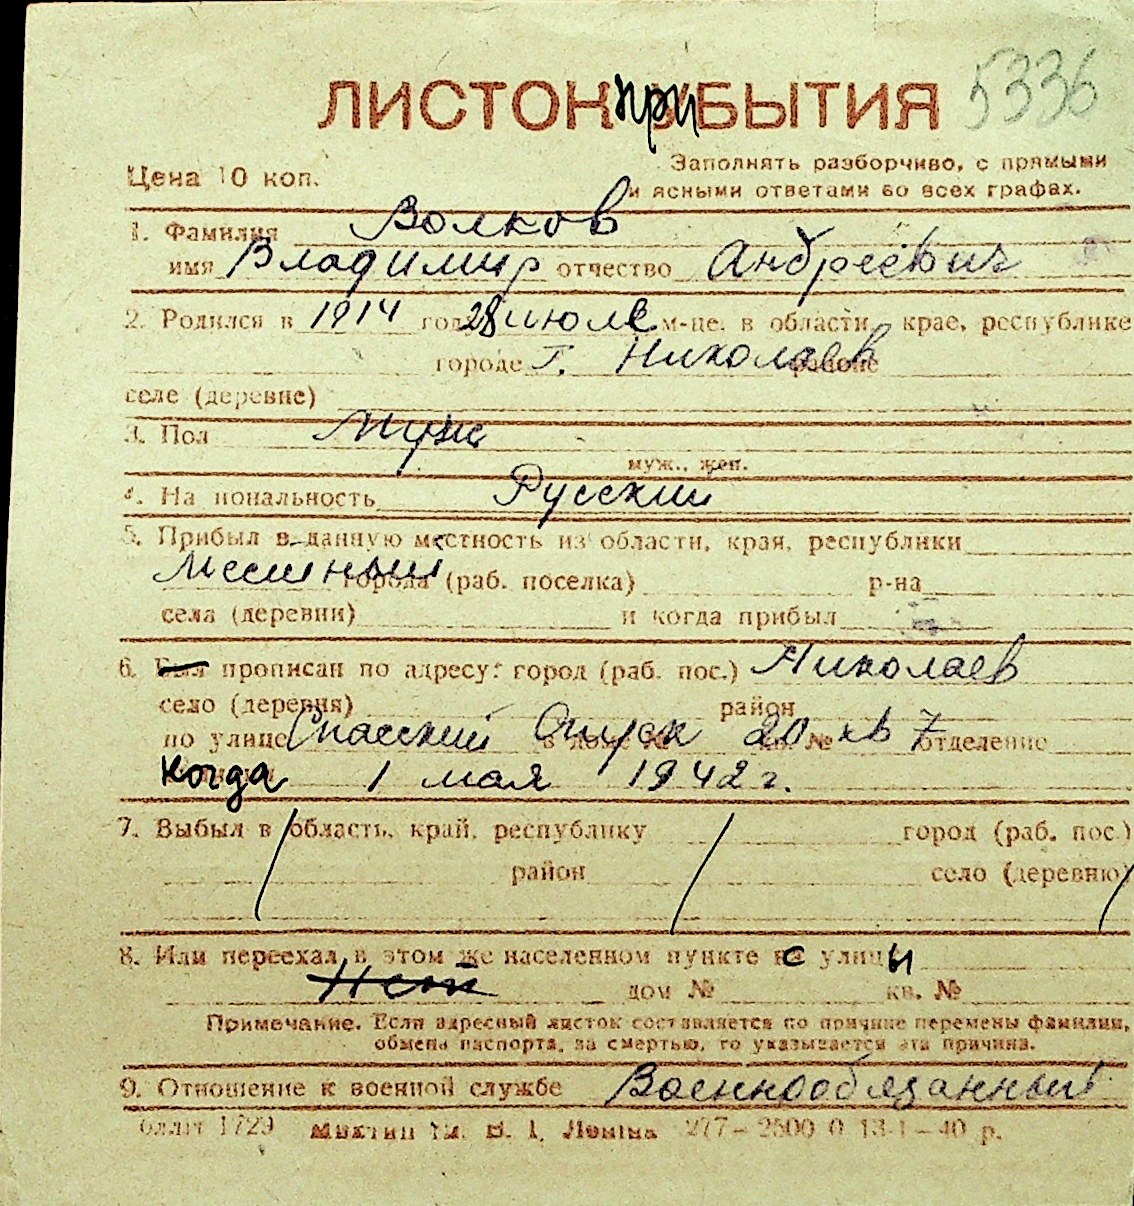 ЛИСТОК ПРИБЫТИЯ 5336
Цена 10 коп.
Заполнять разборчиво, с прямыми
и ясными ответами во всех графах.
1. Фамилия Волков
имя Владимир отчество Андреевич
2. Родился в 1914 году 28 июле м-це, в области, крае, республике
городе г. Николаев районе
селе (деревне)
3. Пол Муж
муж., жен.
4. Национальность Русский
5. Прибыл в данную местность из области, края, республики
Местный города (раб. поселка) р-на
села (деревни) и когда прибыл
6. Был прописан по адресу: город (раб. пос.) Николаев
село (деревня) район
по улице Спасский Спуск в доме № 20 кв 7 отделение
когда 1 мая 1942 г.
7. Выбыл в область, край, республику город (раб. пос.)
район село (деревню)
8. Или переехал в этом же населенном пункте с улицы
Нет дом № кв. №
Примечание. Если адресный листок составляется по причине перемены фамилии,
обмена паспорта, за смертью, то указывается эта причина.
9. Отношение к военной службе Военнообязанный
1729 им. В. И. Ленина 277 – 2500 0 13-1 – 40 р.